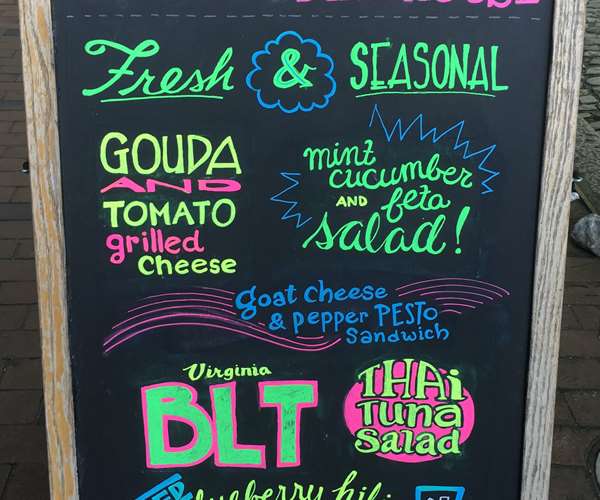 Fresh & SEASONAL
GOUDA
AND
TOMATO
grilled
Cheese
mint
cucumber
AND feta
salad!
goat cheese
& pepper PESTo
Sandwich
Virginia
BLT
THAi
Tuna
Salad